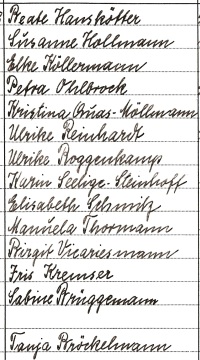 Beate Hanskötter
Susanne Hollmann
Elke Köllermann
Petra Ohlbrock
Kristina Quas-Möllmann
Ulrike Reinhardt
Ulrike Roggenkamp
Karin Seelige-Steinhoff
Elisabeth Schmitz
Manuela Thormann
Birgit Vicariesmann
Iris Kremser
Sabine Brüggemann
Tanja Bröckelmann